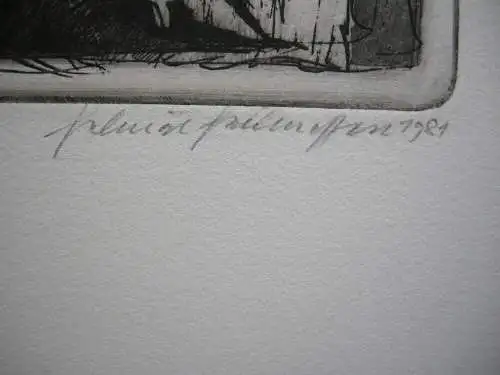 Helmut Hellmessen 1981